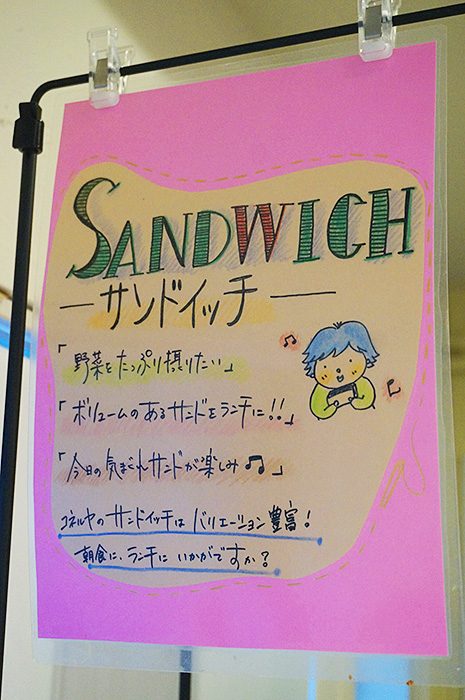 SANDWICH
―サンドイッチ―
「野菜をたっぷり摂りたい」
「ボリュームのあるサンドをランチに!!」
「今日の気まぐれサンドが楽しみ♫」
コネルヤのサンドイッチはバリエーション豊富!
朝食に、ランチにいかがですか?